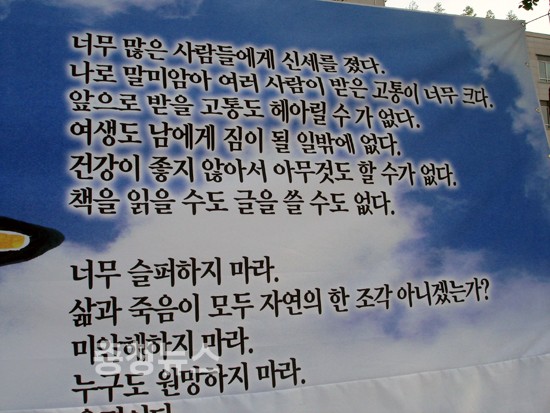 너무 많은 사람들에게 신세를 졌다.
나로 말미암아 여러 사람이 받은 고통이 너무 크다.
앞으로 받을 고통도 헤아릴 수가 없다.
여생도 남에게 짐이 될 일밖에 없다.
건강이 좋지 않아서 아무것도 할 수가 없다.
책을 읽을 수도 글을 쓸 수도 없다.
너무 슬퍼하지 마라.
삶과 죽음이 모두 자연의 한 조각 아니겠는가?
미안해하지 마라.
누구도 원망하지 마라.